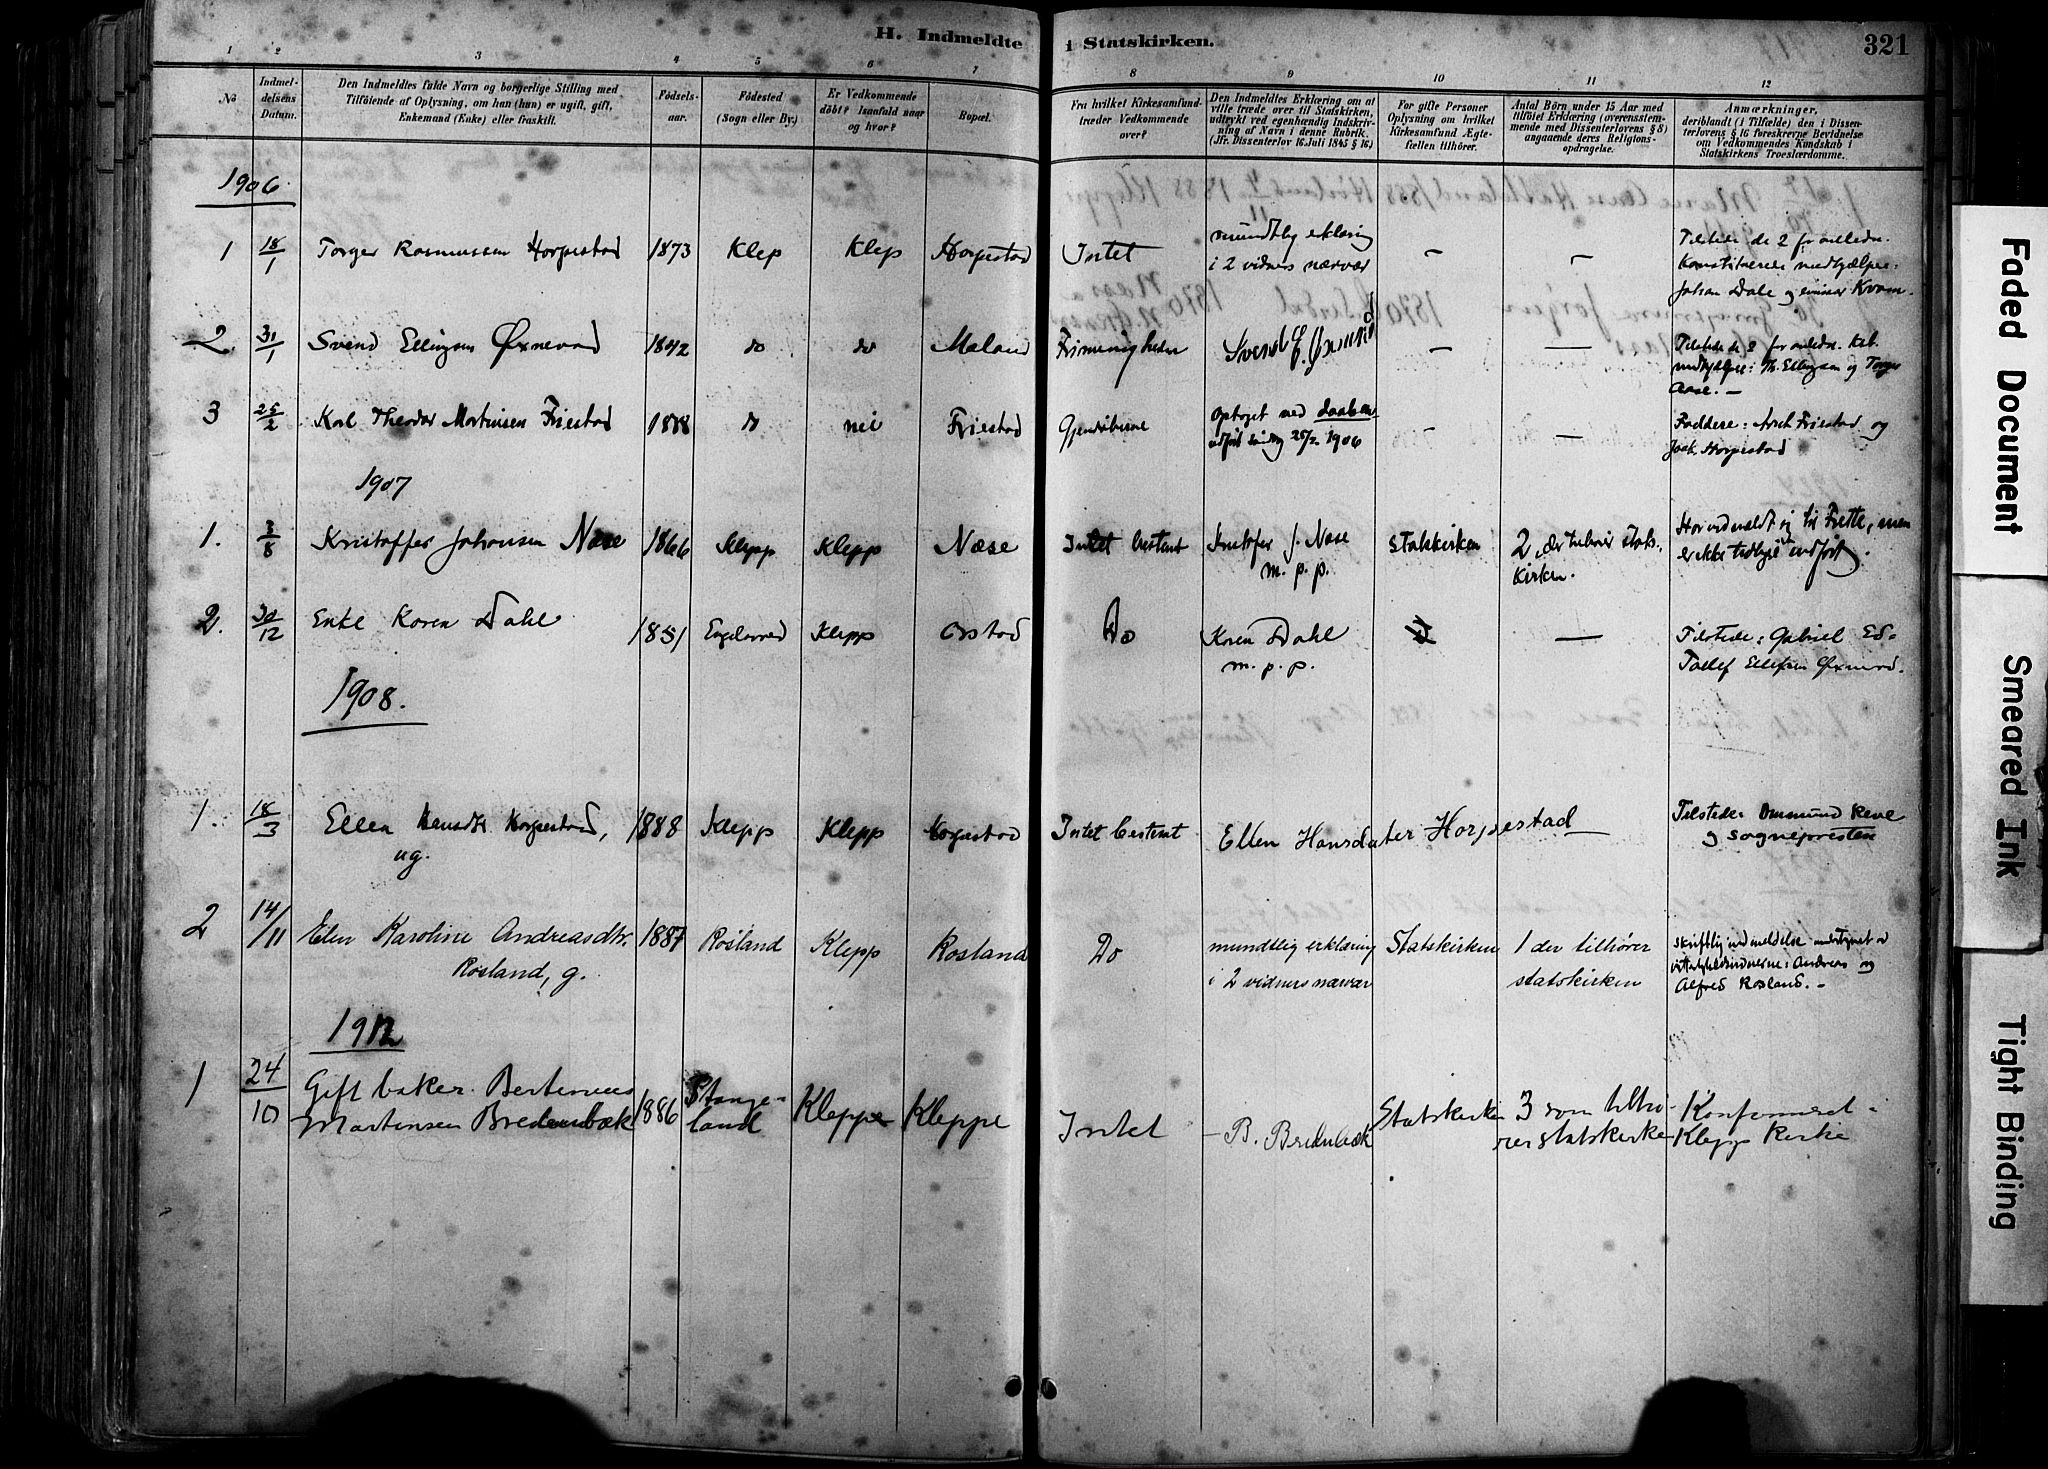 H. Indmeldte i Statskirken.
321
1 2 3 4 5 6 7 8 9 10 11 12
No
Indmel-
delsens
Datum.
Den Indmeldtes fulde Navn og borgerlige Stilling med
Tilföiende af Oplysning, om han (hun) er ugift, gift,
Enkemand (Enke) eller fraskilt.
Fødsels-
aar.
Fødested
(Sogn eller By.)
Er Vedkommende
döbt? Isaafald naar
og hvor?
Bopæl.
Fra hvilket Kirkesamfund
træder Vedkommende
over?
Den Indmeldtes Erklæring om at
ville træde over til Statskirken,
udtrykt ved egenhændig Indskriv-
ning af Navn i denne Rubrik.
(Jfr. Dissenterlov 16. Juli 1845 § 16.)
For gifte Personer
Oplysning om hvilket
Kirkesamfund Ægte-
fællen tilhörer.
Antal Börn under 15 Aar med
tilföiet Erklæring (overensstem-
mende med Dissenterlovens § 8)
angaaende deres Religions-
opdragelse.
Anmærkninger,
deriblandt (i Tilfælde) den i Dissen-
terlovens § 16 foreskrevne Bevidnelse
om Vedkommendes Kundskab i
Statskirkens Troeslærdomme.
1906
1 18/1 Torger Rasmussen Horpestad 1873 Klep Klep Horpestad Intet mundtlig erklæring
i 2 vidners nærvær — — Tilstede de 2 for anledn.
Konstituerede medhjælpere:
Johan Dale og Kvam.
2 31/1 Svend Ellingsen Øxnevad 1842 do do Mæland Svend E. Øxnevad — — Tilstede de 2 for anledn.
medhjælpere: Th. Ellingsen og Torger
Aase. —
3 25/2 Karl Theodor Martinsen Friestad 1888 do nei Friestad Gjendöberne Optaget ved daaben
udfört söndag 25/2 1906 — — Faddere: Friestad og
Jaak. Horpestad
1907
1. 3/8 Kristoffer Johansen Næse 1866 Klepp Klepp Næse Intet bestemt Kristoffer J. Næse
m. p. p. Statskirken 2, der tilhører stats-
kirken. Har udmeldt sig til Frelse, men
er ikke tidligere indført.
2. 30/12 Enke Karen Dahl 1851 Klepp Orstad Do Karen Dahl
m. p. p. — Tilstede: Gabriel
Tollef Ellefsen Øxnevad.
1908.
1. 18/3 Ellen Hansdtr Horpestad,
ug. 1888 Klepp Klepp Horpestad Intet bestemt Ellen Hansdater Horpestad — Tilstede: Ommund Reve
og sognepresten
2 14/11 Elen Karoline Andreasdtr.
Rosland, g. 1887 Rosland Klepp Rosland Do mundtlig erklæring
i 2 vidners nærvær Statskirken 1 der tilhører
statskirken skriftlig indmeldelse undertegnet av
Andreas og
Alfred Rosland. —
1912
1 24/10 Gift baker Bertinius
Martinsen Bredenbæk 1886 Stange-
land Kleppe Kleppe Intet — B. Bredenbæk Statskirke 3 som tilhø-
rer statskirke Konfirmeret i
Klepp Kirke
Faded Document
Smeared Ink
Tight Binding